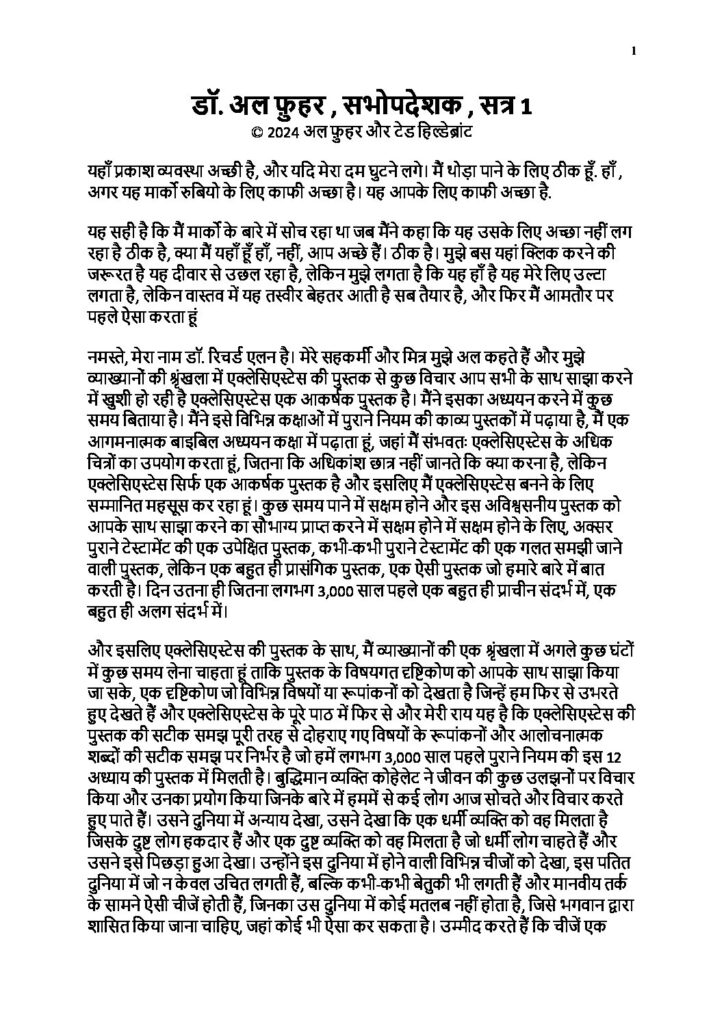 1
डॉ. अल फ़ुहर , सभोपदेशक , सत्र 1
© 2024 अल फ़ुहर और टेड हिल्डेब्रांट
यहाँ प्रकाश व्यवस्था अच्छी है, और यदि मेरा दम घुटने लगे। मैं थोड़ा पाने के लिए ठीक हूँ. हाँ ,
अगर यह मार्को रुबियो के लिए काफी अच्छा है। यह आपके लिए काफी अच्छा है.
यह सही है कि मैं मार्को के बारे में सोच रहा था जब मैंने कहा कि यह उसके लिए अच्छा नहीं लग
रहा है ठीक है, क्या मैं यहाँ हूँ हाँ, नहीं, आप अच्छे हैं। ठीक है। मुझे बस यहां क्लिक करने की
जरूरत है यह दीवार से उछल रहा है, लेकिन मुझे लगता है कि यह हाँ है यह मेरे लिए उल्टा
लगता है, लेकिन वास्तव में यह तस्वीर बेहतर आती है सब तैयार है, और फिर मैं आमतौर पर
पहले ऐसा करता हूं
नमस्ते, मेरा नाम डॉ. रिचर्ड एलन है। मेरे सहकर्मी और मित्र मुझे अल कहते हैं और मुझे
व्याख्यानों की श्रृंखला में एक्लेसिएस्टेस की पुस्तक से कुछ विचार आप सभी के साथ साझा करने
में खुशी हो रही है एक्लेसिएस्टेस एक आकर्षक पुस्तक है। मैंने इसका अध्ययन करने में कुछ
समय बिताया है। मैंने इसे विभिन्न कक्षाओं में पुराने नियम की काव्य पुस्तकों में पढ़ाया है, मैं एक
आगमनात्मक बाइबिल अध्ययन कक्षा में पढ़ाता हूं, जहां मैं संभवतः एक्लेसिएस्टेस के अधिक
चित्रों का उपयोग करता हूं, जितना कि अधिकांश छात्र नहीं जानते कि क्या करना है, लेकिन
एक्लेसिएस्टेस सिर्फ एक आकर्षक पुस्तक है और इसलिए मैं एक्लेसिएस्टेस बनने के लिए
सम्मानित महसूस कर रहा हूं। कुछ समय पाने में सक्षम होने और इस अविश्वसनीय पुस्तक को
आपके साथ साझा करने का सौभाग्य प्राप्त करने में सक्षम होने में सक्षम होने के लिए, अक्सर
पुराने टेस्टामेंट की एक उपेक्षित पुस्तक, कभी-कभी पुराने टेस्टामेंट की एक गलत समझी जाने
वाली पुस्तक, लेकिन एक बहुत ही प्रासंगिक पुस्तक, एक ऐसी पुस्तक जो हमारे बारे में बात
करती है। दिन उतना ही जितना लगभग 3,000 साल पहले एक बहुत ही प्राचीन संदर्भ में, एक
बहुत ही अलग संदर्भ में।
और इसलिए एक्लेसिएस्टेस की पुस्तक के साथ, मैं व्याख्यानों की एक श्रृंखला में अगले कुछ घंटों
में कुछ समय लेना चाहता हूं ताकि पुस्तक के विषयगत दृष्टिकोण को आपके साथ साझा किया
जा सके, एक दृष्टिकोण जो विभिन्न विषयों या रूपांकनों को देखता है जिन्हें हम फिर से उभरते
हुए देखते हैं और एक्लेसिएस्टेस के पूरे पाठ में फिर से और मेरी राय यह है कि एक्लेसिएस्टेस की
पुस्तक की सटीक समझ पूरी तरह से दोहराए गए विषयों के रूपांकनों और आलोचनात्मक
शब्दों की सटीक समझ पर निर्भर है जो हमें लगभग 3,000 साल पहले पुराने नियम की इस 12
अध्याय की पुस्तक में मिलती है। बुद्धिमान व्यक्ति कोहेलेट ने जीवन की कुछ उलझनों पर विचार
किया और उनका प्रयोग किया जिनके बारे में हममें से कई लोग आज सोचते और विचार करते
हुए पाते हैं। उसने दुनिया में अन्याय देखा, उसने देखा कि एक धर्मी व्यक्ति को वह मिलता है
जिसके दुष्ट लोग हकदार हैं और एक दुष्ट व्यक्ति को वह मिलता है जो धर्मी लोग चाहते हैं और
उसने इसे पिछड़ा हुआ देखा। उन्होंने इस दुनिया में होने वाली विभिन्न चीजों को देखा, इस पतित
दुनिया में जो न केवल उचित लगती हैं, बल्कि कभी-कभी बेतुकी भी लगती हैं और मानवीय तर्क
के सामने ऐसी चीजें होती हैं, जिनका उस दुनिया में कोई मतलब नहीं होता है, जिसे भगवान द्वारा
शासित किया जाना चाहिए, जहां कोई भी ऐसा कर सकता है। उम्मीद करते हैं कि चीजें एक